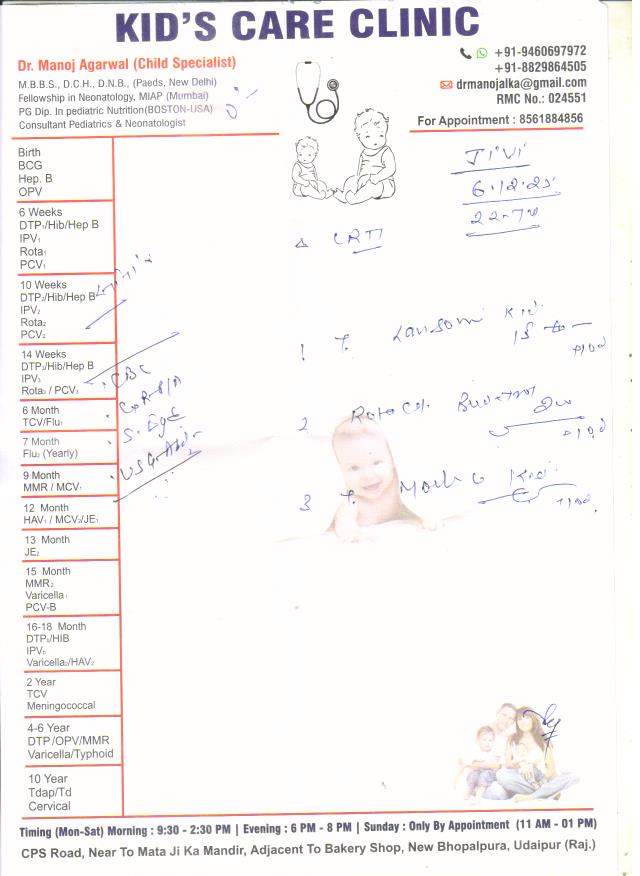 KID'S CARE CLINIC
Dr. Manoj Agarwal (Child Specialist)
M.B.B.S., D.C.H., D.N.B., (Paeds, New Delhi)
Fellowship in Neonatology, MIAP (Mumbai)
PG Dip. In pediatric Nutrition(BOSTON-USA)
Consultant Pediatrics & Neonatologist
+91-9460697972
+91-8829864505
drmanojalka@gmail.com
RMC No.: 024551
For Appointment : 8561884856
JIVI
6.12.25
LRTI
Birth
BCG
Hep. B
OPV
6 Weeks
DTP₁/Hib/Hep B
IPV₁
Rota₁
PCV₁
10 Weeks
DTP₂/Hib/Hep B
IPV₂
Rota₂
PCV₂
14 Weeks
DTP₃/Hib/Hep B
IPV₃
Rota₃ / PCV₃
6 Month
TCV/Flu₁
7 Month
Flu₂ (Yearly)
9 Month
MMR / MCV₁
12 Month
HAV₁ / MCV₂/JE₁
13 Month
JE₂
15 Month
MMR₂
Varicella₁
PCV-B
16-18 Month
DTP₅/HIB
IPV₅
Varicella₂/HAV₂
2 Year
TCV
Meningococcal
4-6 Year
DTP/OPV/MMR
Varicella/Typhoid
10 Year
Tdap/Td
Cervical
CBC
S. IgE
1 T. Kid
2
3 T. Kid
Timing (Mon-Sat) Morning : 9:30 - 2:30 PM | Evening : 6 PM - 8 PM | Sunday : Only By Appointment (11 AM - 01 PM)
CPS Road, Near To Mata Ji Ka Mandir, Adjacent To Bakery Shop, New Bhopalpura, Udaipur (Raj.)